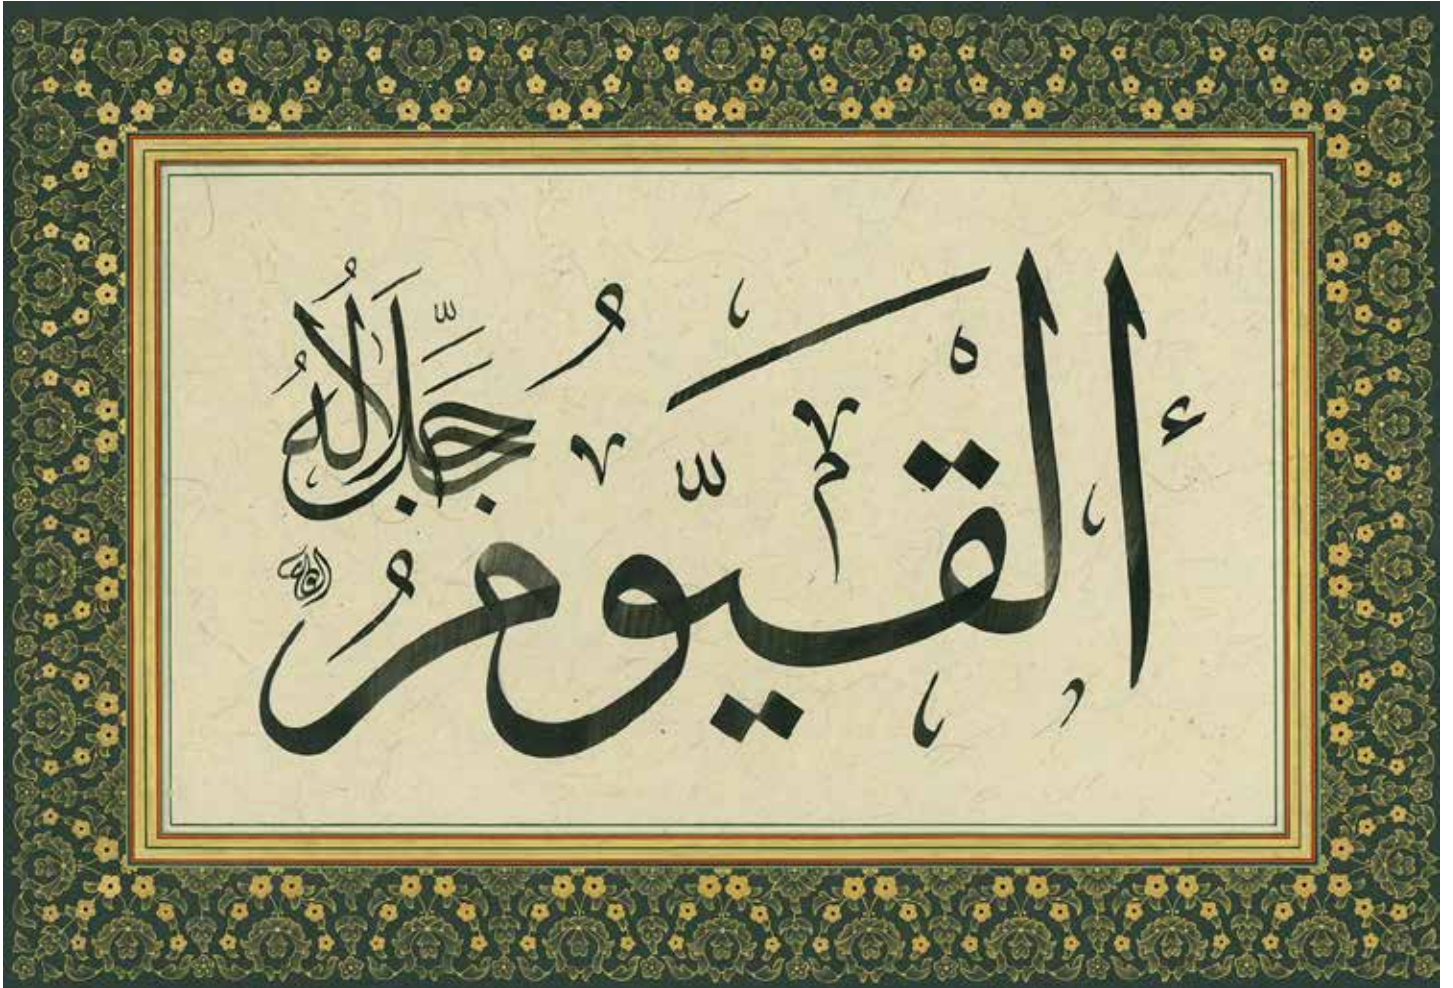 أَلْقَيُّومُ
جَلَّ جَلَالُهُ